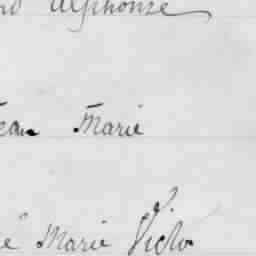 Alphonse
Jean Marie
Marie Victor